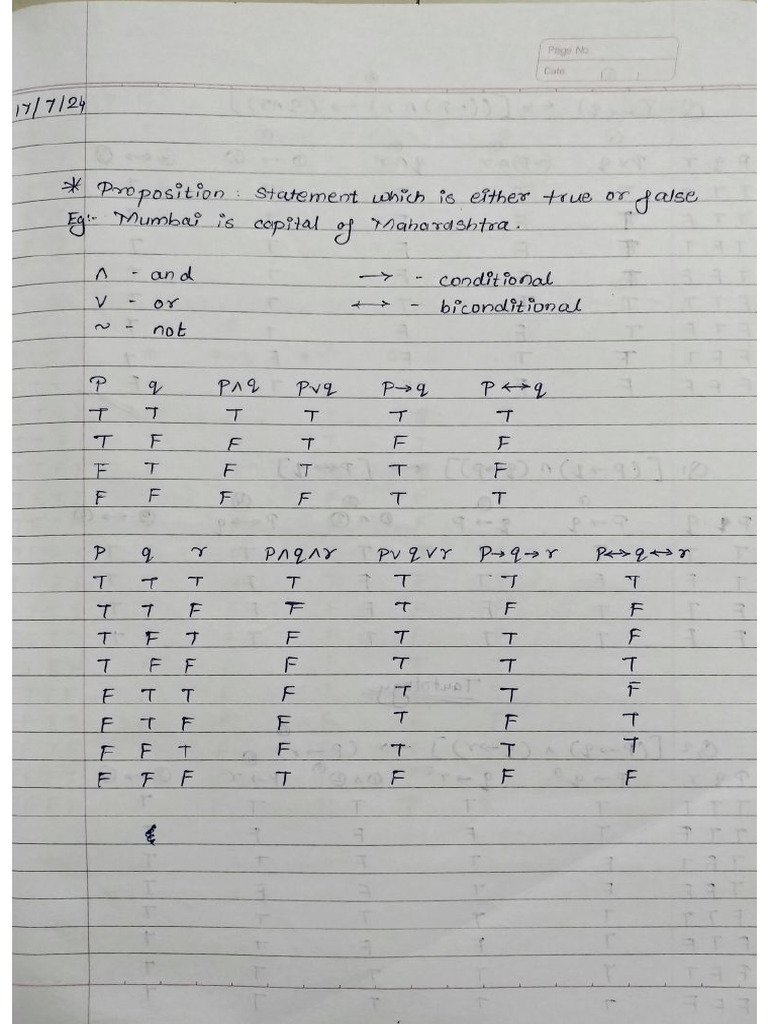 Page No.
Date
17/7/24
* Proposition : Statement which is either true or false
Eg:- Mumbai is capital of Maharashtra.
∧ - and → - conditional
∨ - or ↔ - biconditional
~ - not
P q P∧q P∨q P→q P↔q
T T T T T T
T F F T F F
F T F T T F
F F F F T T
P q r P∧q∧r P∨q∨r P→q→r P↔q↔r
T T T T T T T
T T F F T F F
T F T F T T F
T F F F T T T
F T T F T T F
F T F F T F T
F F T F T T T
F F F T F F F